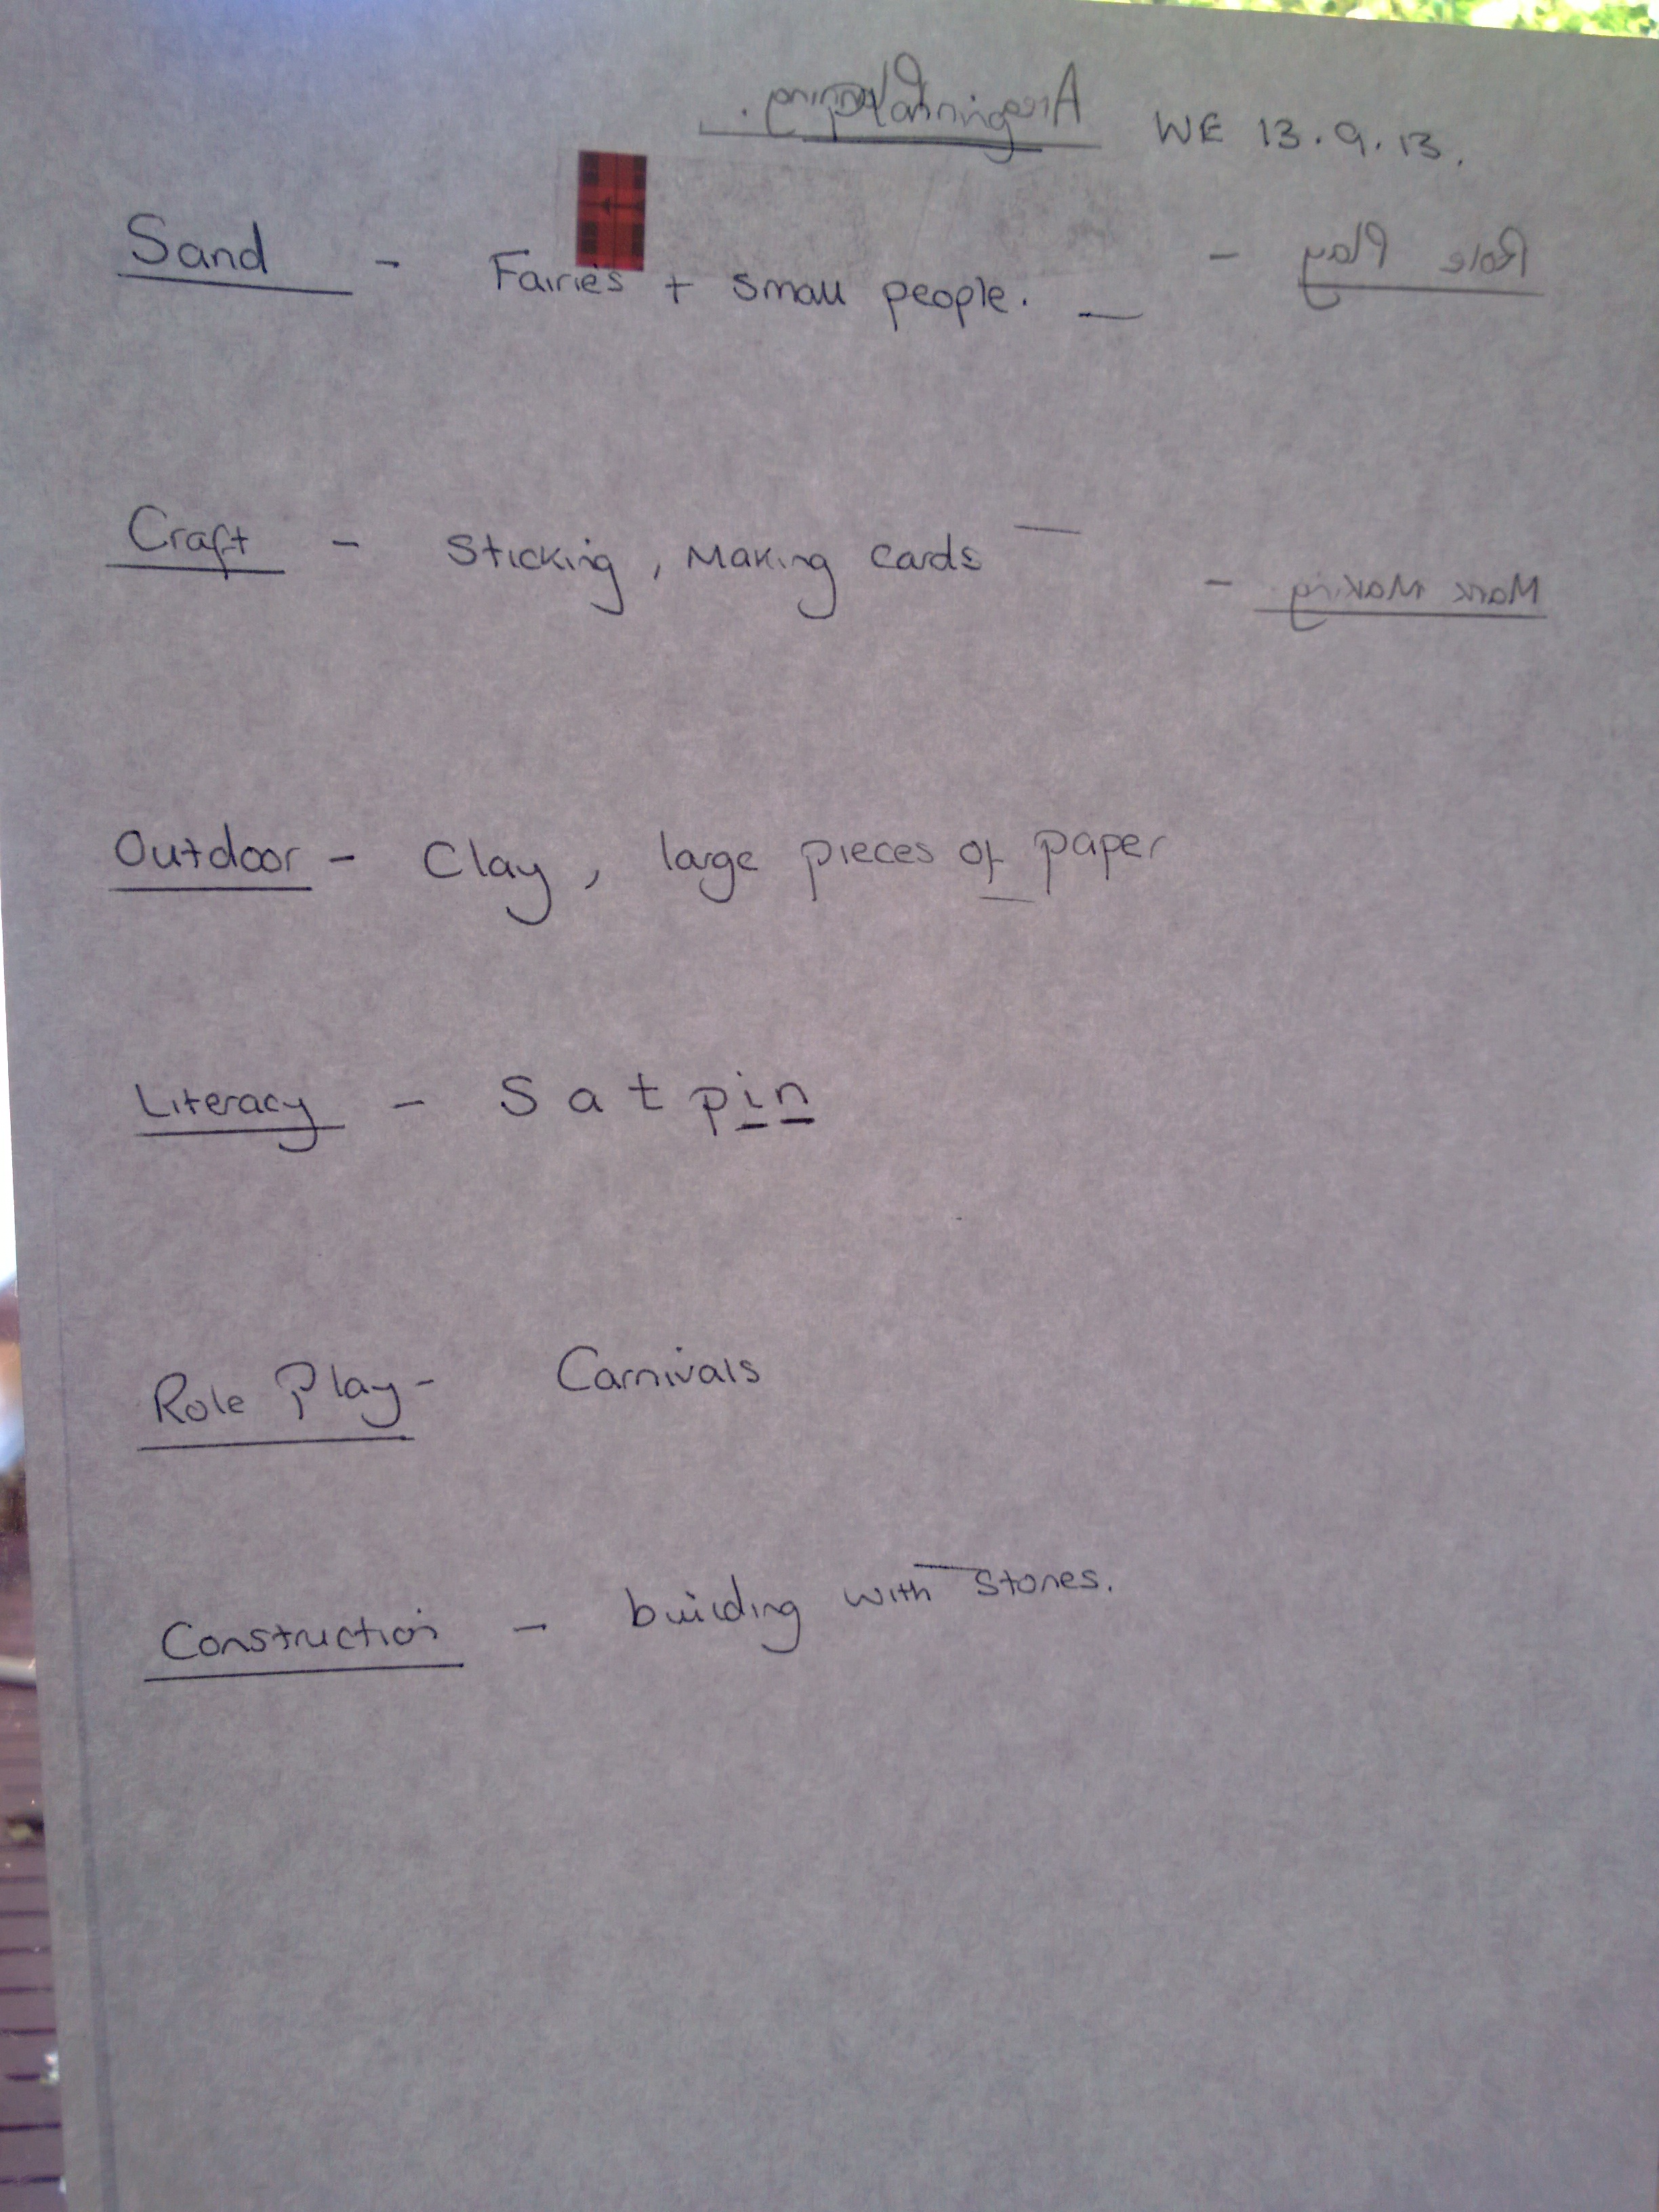 Planning WE 13.9.13.
Area Planning.
Sand - Fairies + small people.
Role Play -
Craft - Sticking, Making cards
Mark Making -
Outdoor - Clay, large pieces of paper
Literacy - S a t p i n
Role Play - Carnivals
Construction - building with stones.